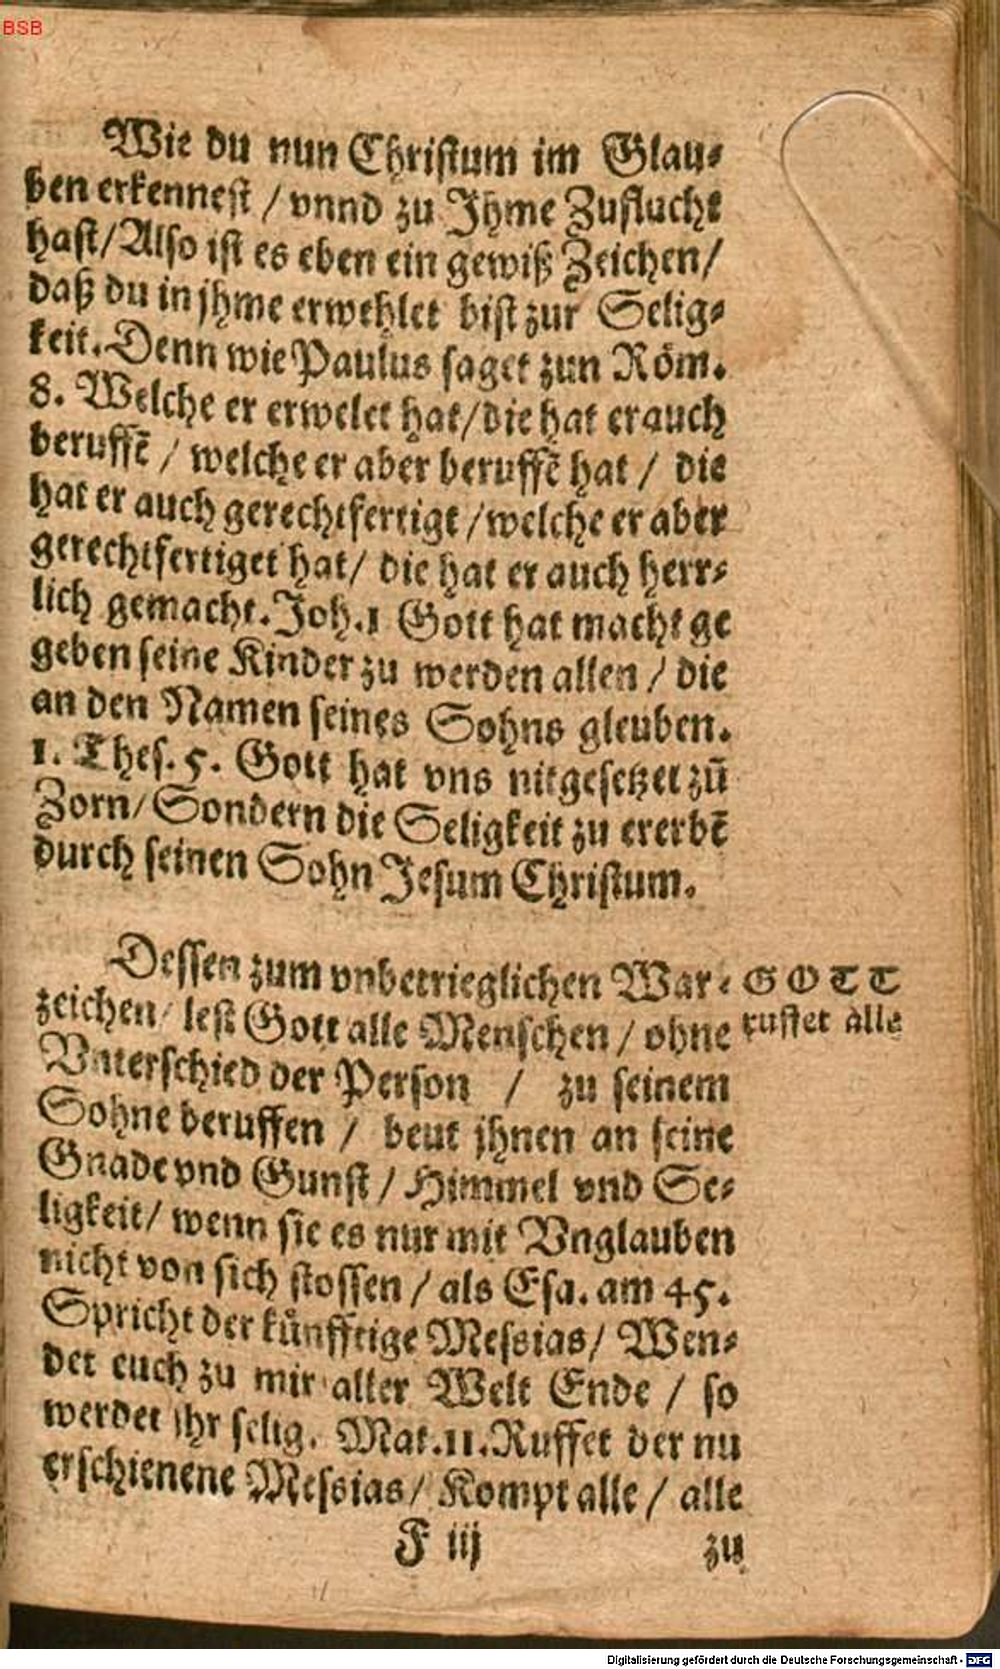 BSB
Wie du nun Christum im Glau-
ben erkennest / vnnd zu Jhme Zuflucht
hast/Also ist es eben ein gewiß Zeichen/
daß du in jhme erwehlet bist zur Selig-
keit. Denn wie Paulus saget zun Röm.
8. Welche er erwelet hat/die hat er auch
beruffẽ / welche er aber beruffẽ hat / die
hat er auch gerechtfertigt /welche er aber
gerechtfertiget hat/ die hat er auch herr-
lich gemacht. Joh.1 Gott hat macht ge
geben seine Kinder zu werden allen / die
an den Namen seines Sohns gleuben.
1. Thes. 5. Gott hat vns nit gesetzet zũ
Zorn/Sondern die Seligkeit zu ererbẽ
durch seinen Sohn Jesum Christum.
Dessen zum vnbetrieglichen War-
zeichen/ lest Gott alle Menschen / ohne
Vnterschied der Person / zu seinem
Sohne beruffen / beut jhnen an seine
Gnade vnd Gunst / Himmel vnd Se-
ligkeit/ wenn sie es nur mit Vnglauben
nicht von sich stossen / als Esa. am 45.
Spricht der künfftige Messias/ Wen-
det euch zu mir aller Welt Ende / so
werdet jhr selig. Mat.11.Ruffet der nu
erschienene Messias/ Kompt alle / alle
F iij
zu
GOTT
ruffet alle
Digitalisierung gefördert durch die Deutsche Forschungsgemeinschaft - DFG